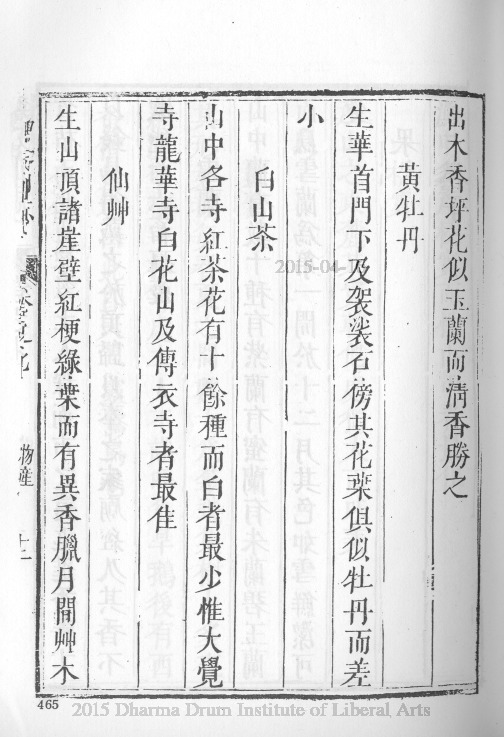 出木香坪花似玉蘭而清香勝之
黃牡丹
生華首門下及袈裟石傍其花葉俱似牡丹而差
小
白山茶
山中各寺紅茶花有十餘種而白者最少惟大覺
寺龍華寺白花山及傳衣寺者最佳
仙艸
生山頂諸崖壁紅梗綠葉而有異香臘月間艸木
物產
十二
465
2015-04-
2015 Dharma Drum Institute of Liberal Arts